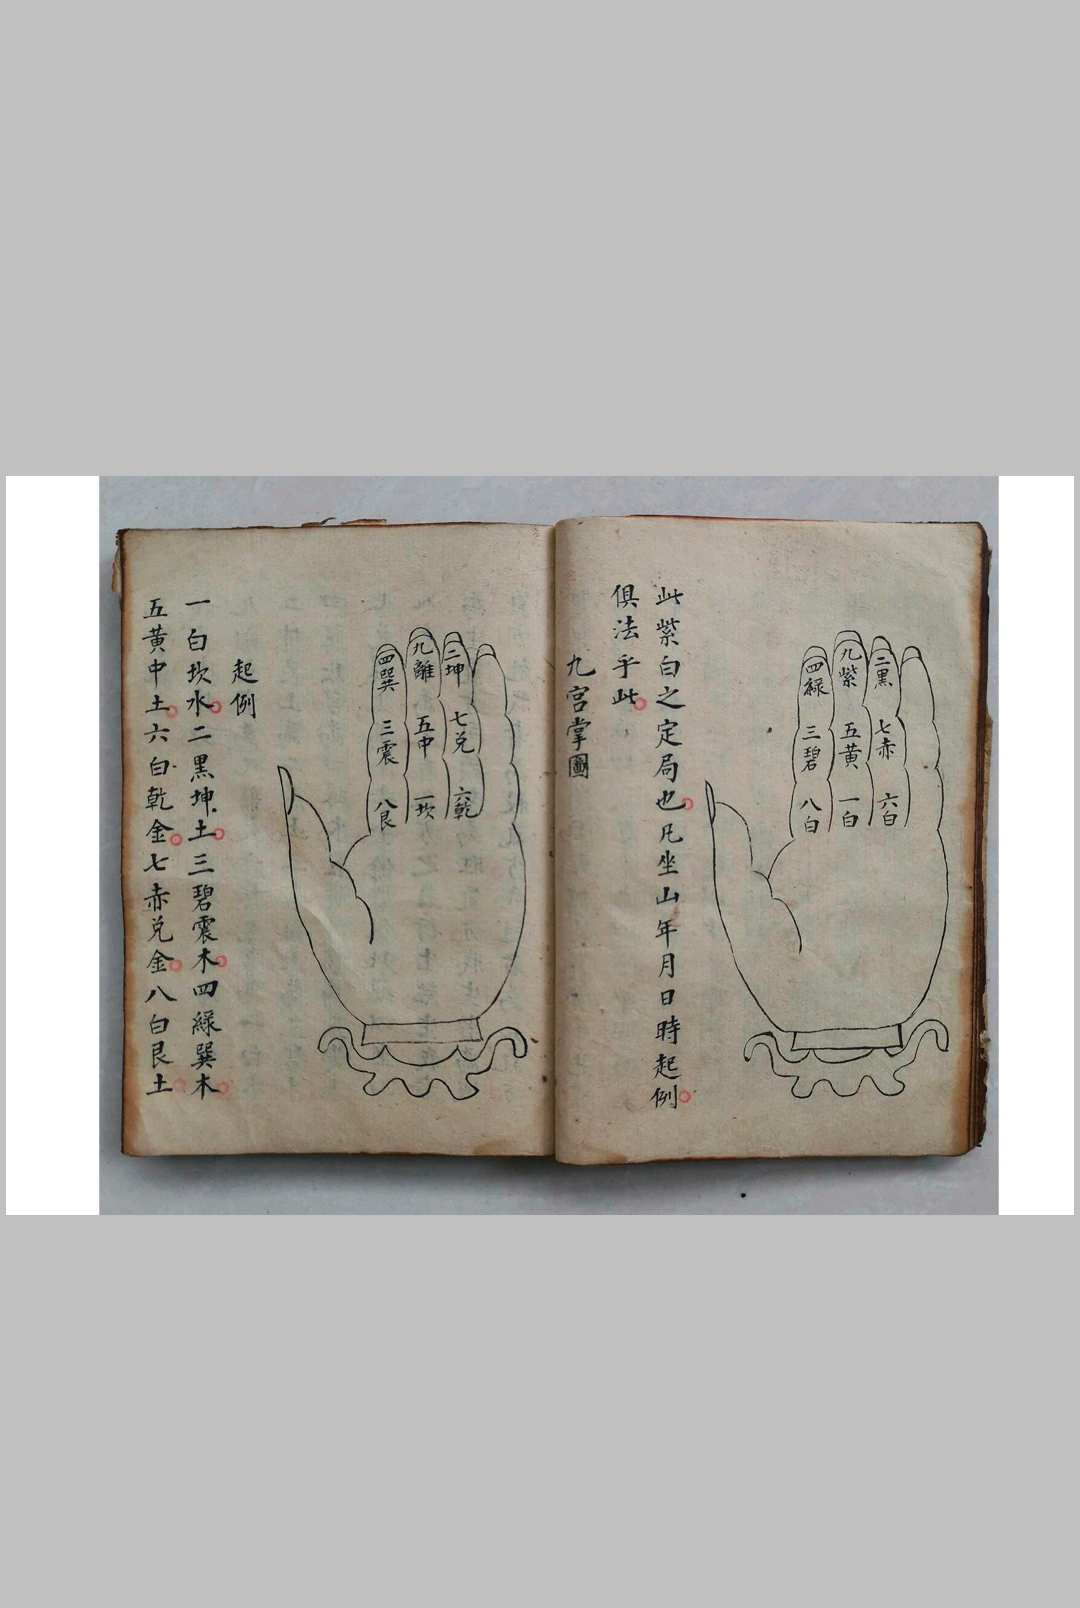 二黑
七赤
六白
九紫
五黄
一白
四綠
三碧
八白
此紫白之定局也凡坐山年月日時起例
俱法乎此
九宫掌圖
二坤
七兑
六乾
九離
五中
一坎
四巽
三震
八艮
起例
一白坎水二黑坤土三碧震木四綠巽木
五黄中土六白乾金七赤兑金八白艮土